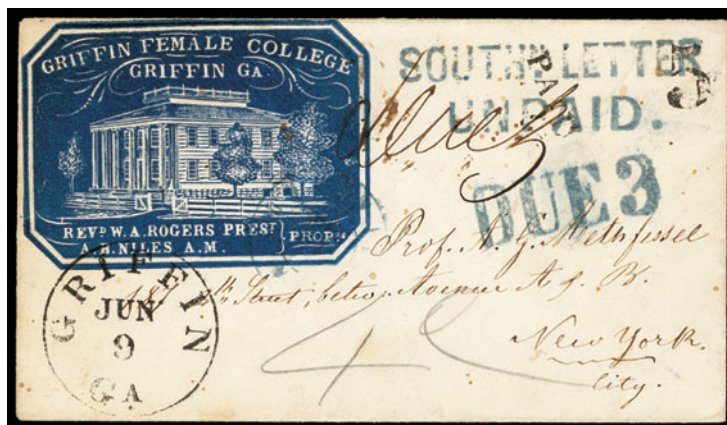 GRIFFIN FEMALE COLLEGE
GRIFFIN GA.
REVD W. A. ROGERS PREST
A. B. NILES A. M.
} PROPRS
SOUTHN. LETTER
UNPAID.
PAID
5
Due 3
DUE 3
GRIFFIN
JUN
9
GA
Prof. A. G. Methfessel
Street, betw. Avenue A & B.
New York.
City.